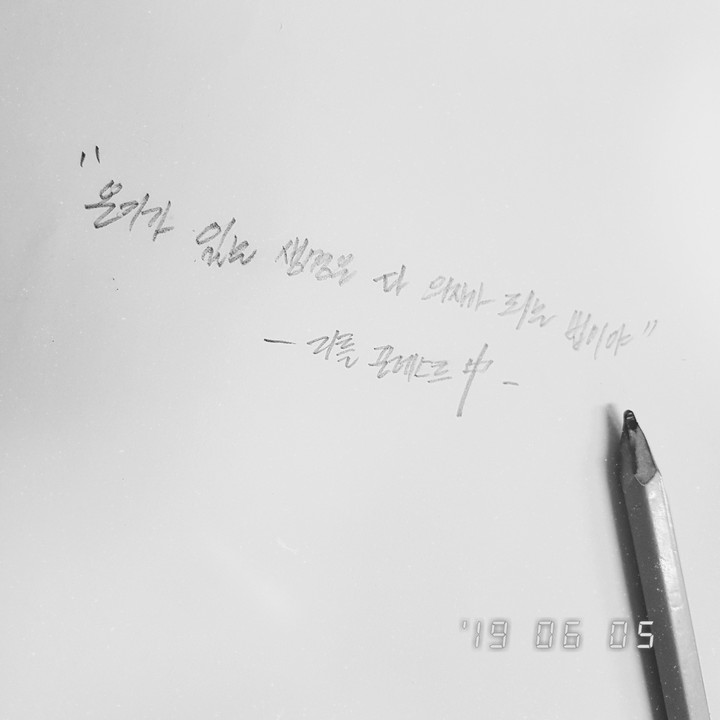 "온기가 있는 생명은 다 의지가 되는 법이야"
- 리틀 포레스트 中 -
'19 06 05